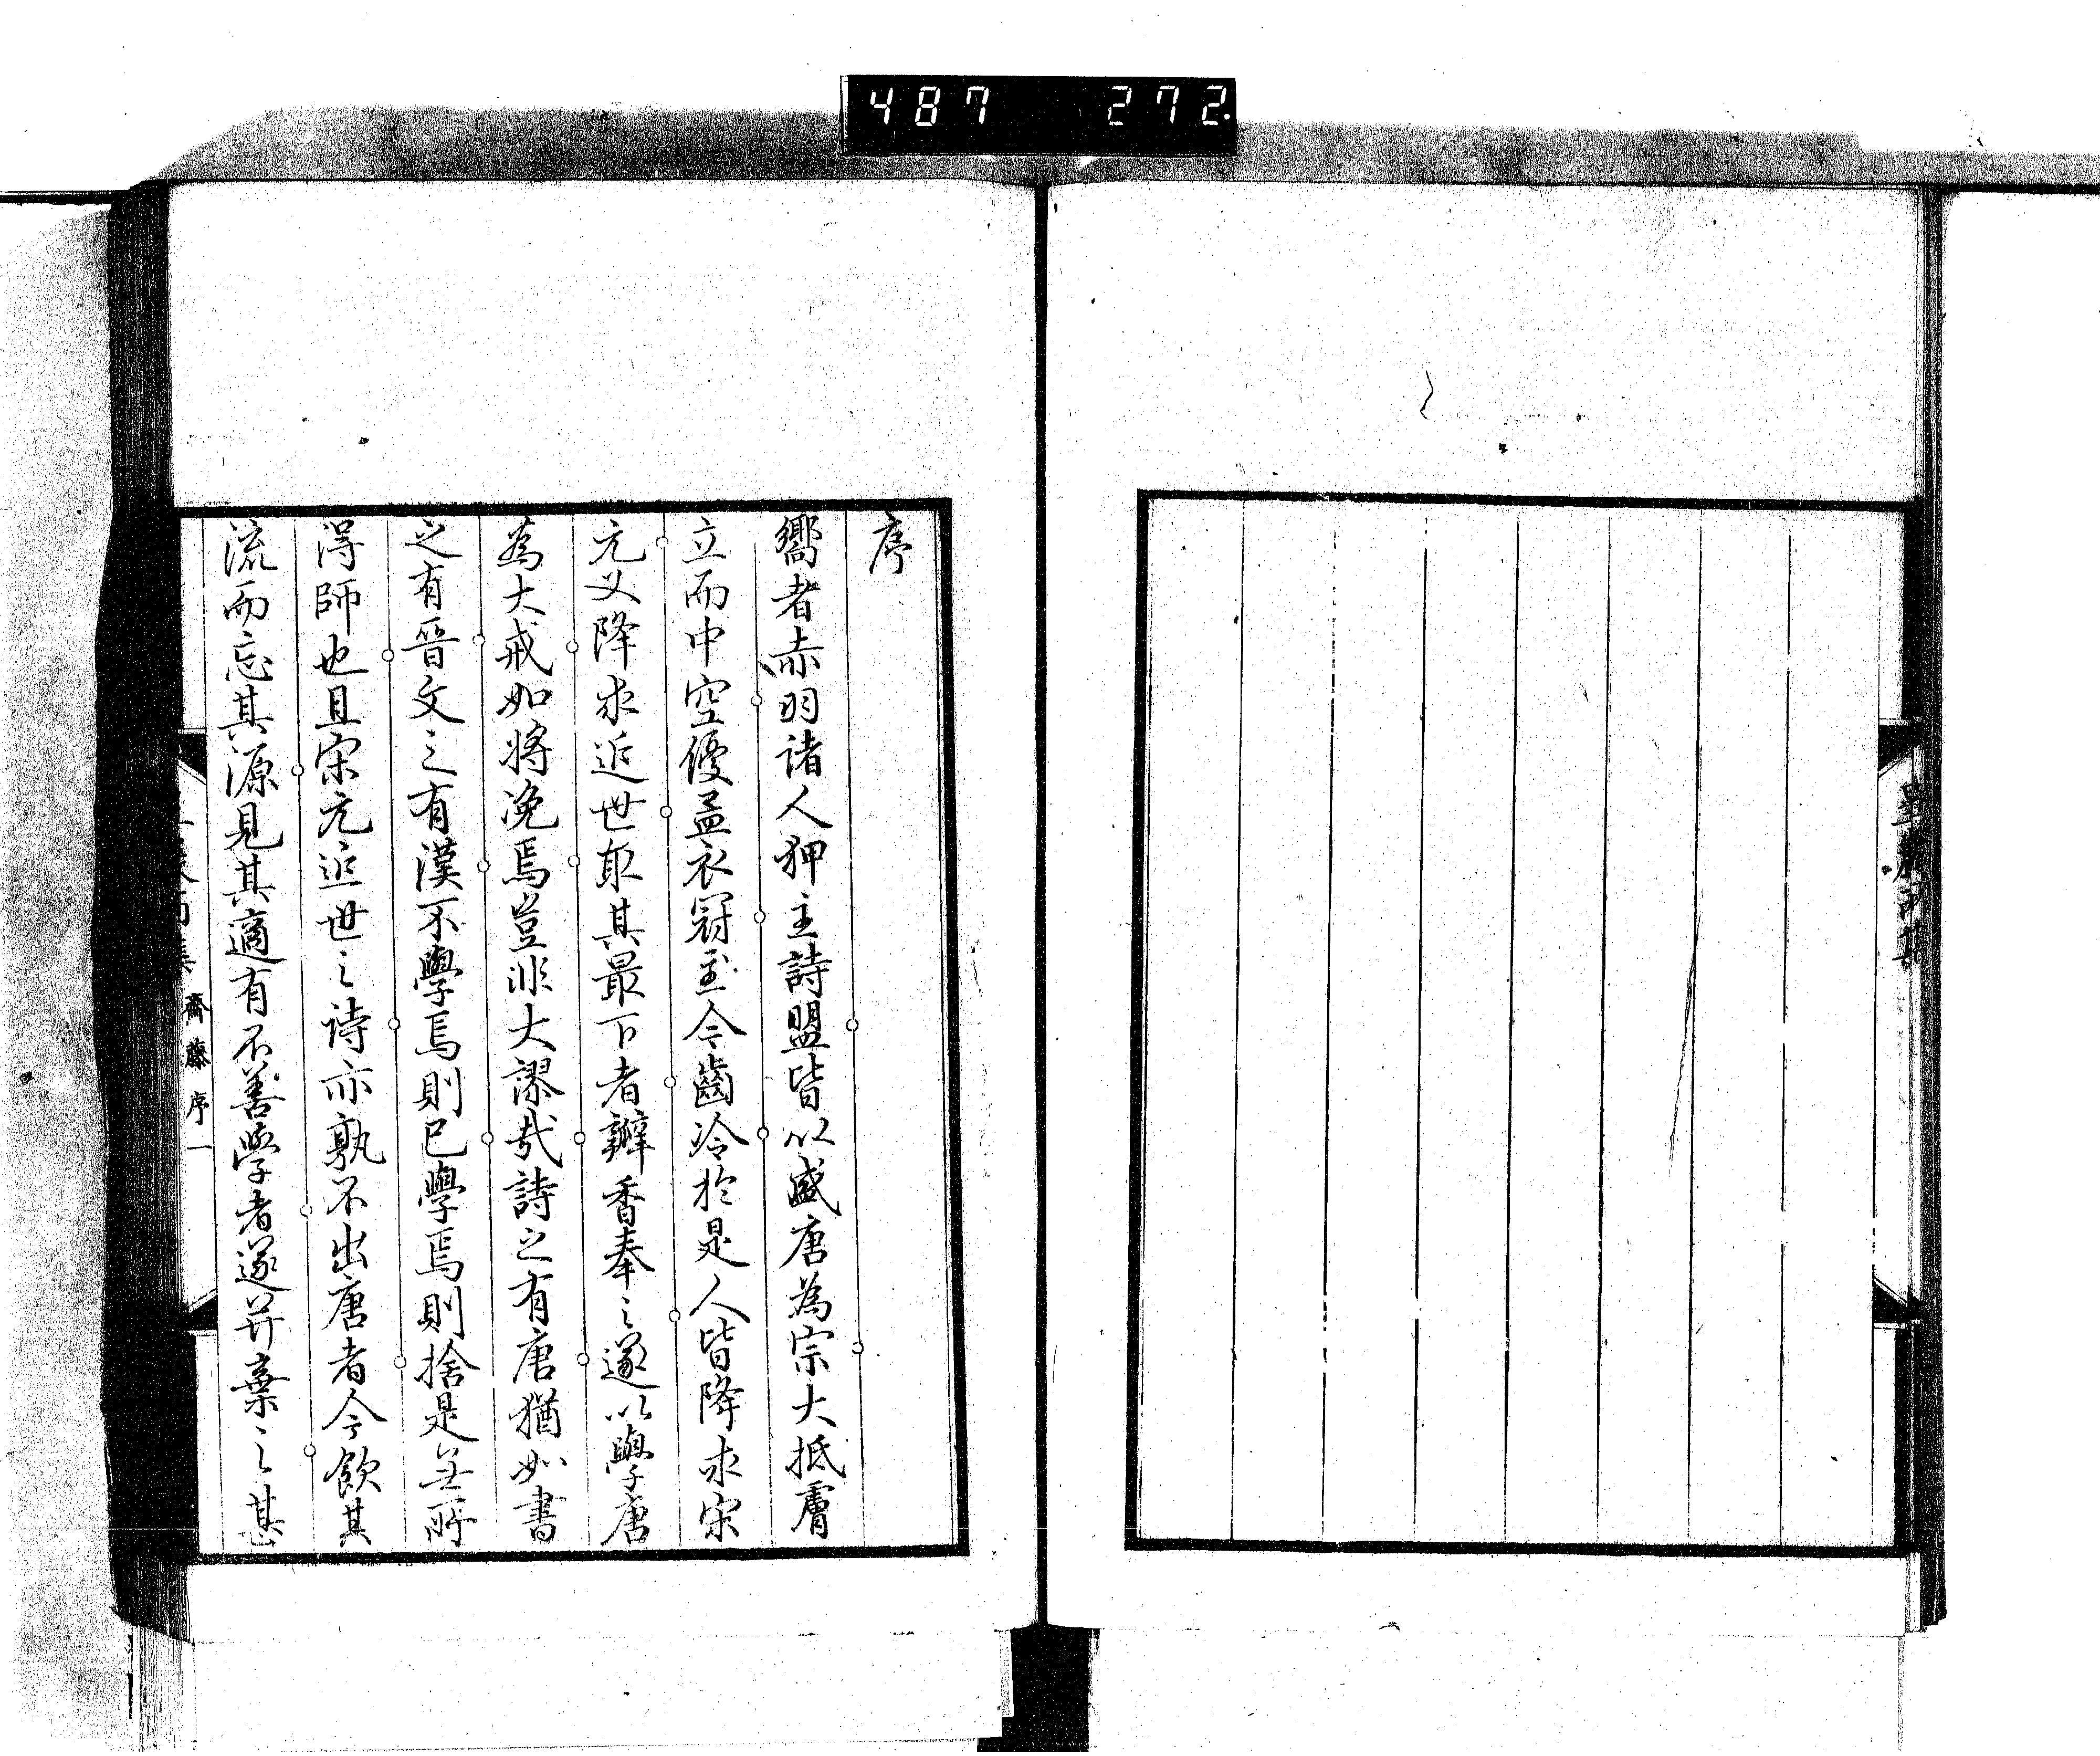 487 272
序
嚮者赤羽諸人狎主詩盟皆以盛唐為宗大抵膚
立而中空優孟衣冠至今齒冷於是人皆降求宋
元又降求近世取其最下者瓣香奉之遂以學唐
為大戒如將浼焉豈非大謬哉詩之有唐猶如書
之有晉文之有漢不學焉則已學焉則捨是無所
得師也且宋元近世之詩亦孰不出唐者今飲其
流而忘其源見其適有不善學者遂并棄之甚
齋藤序一